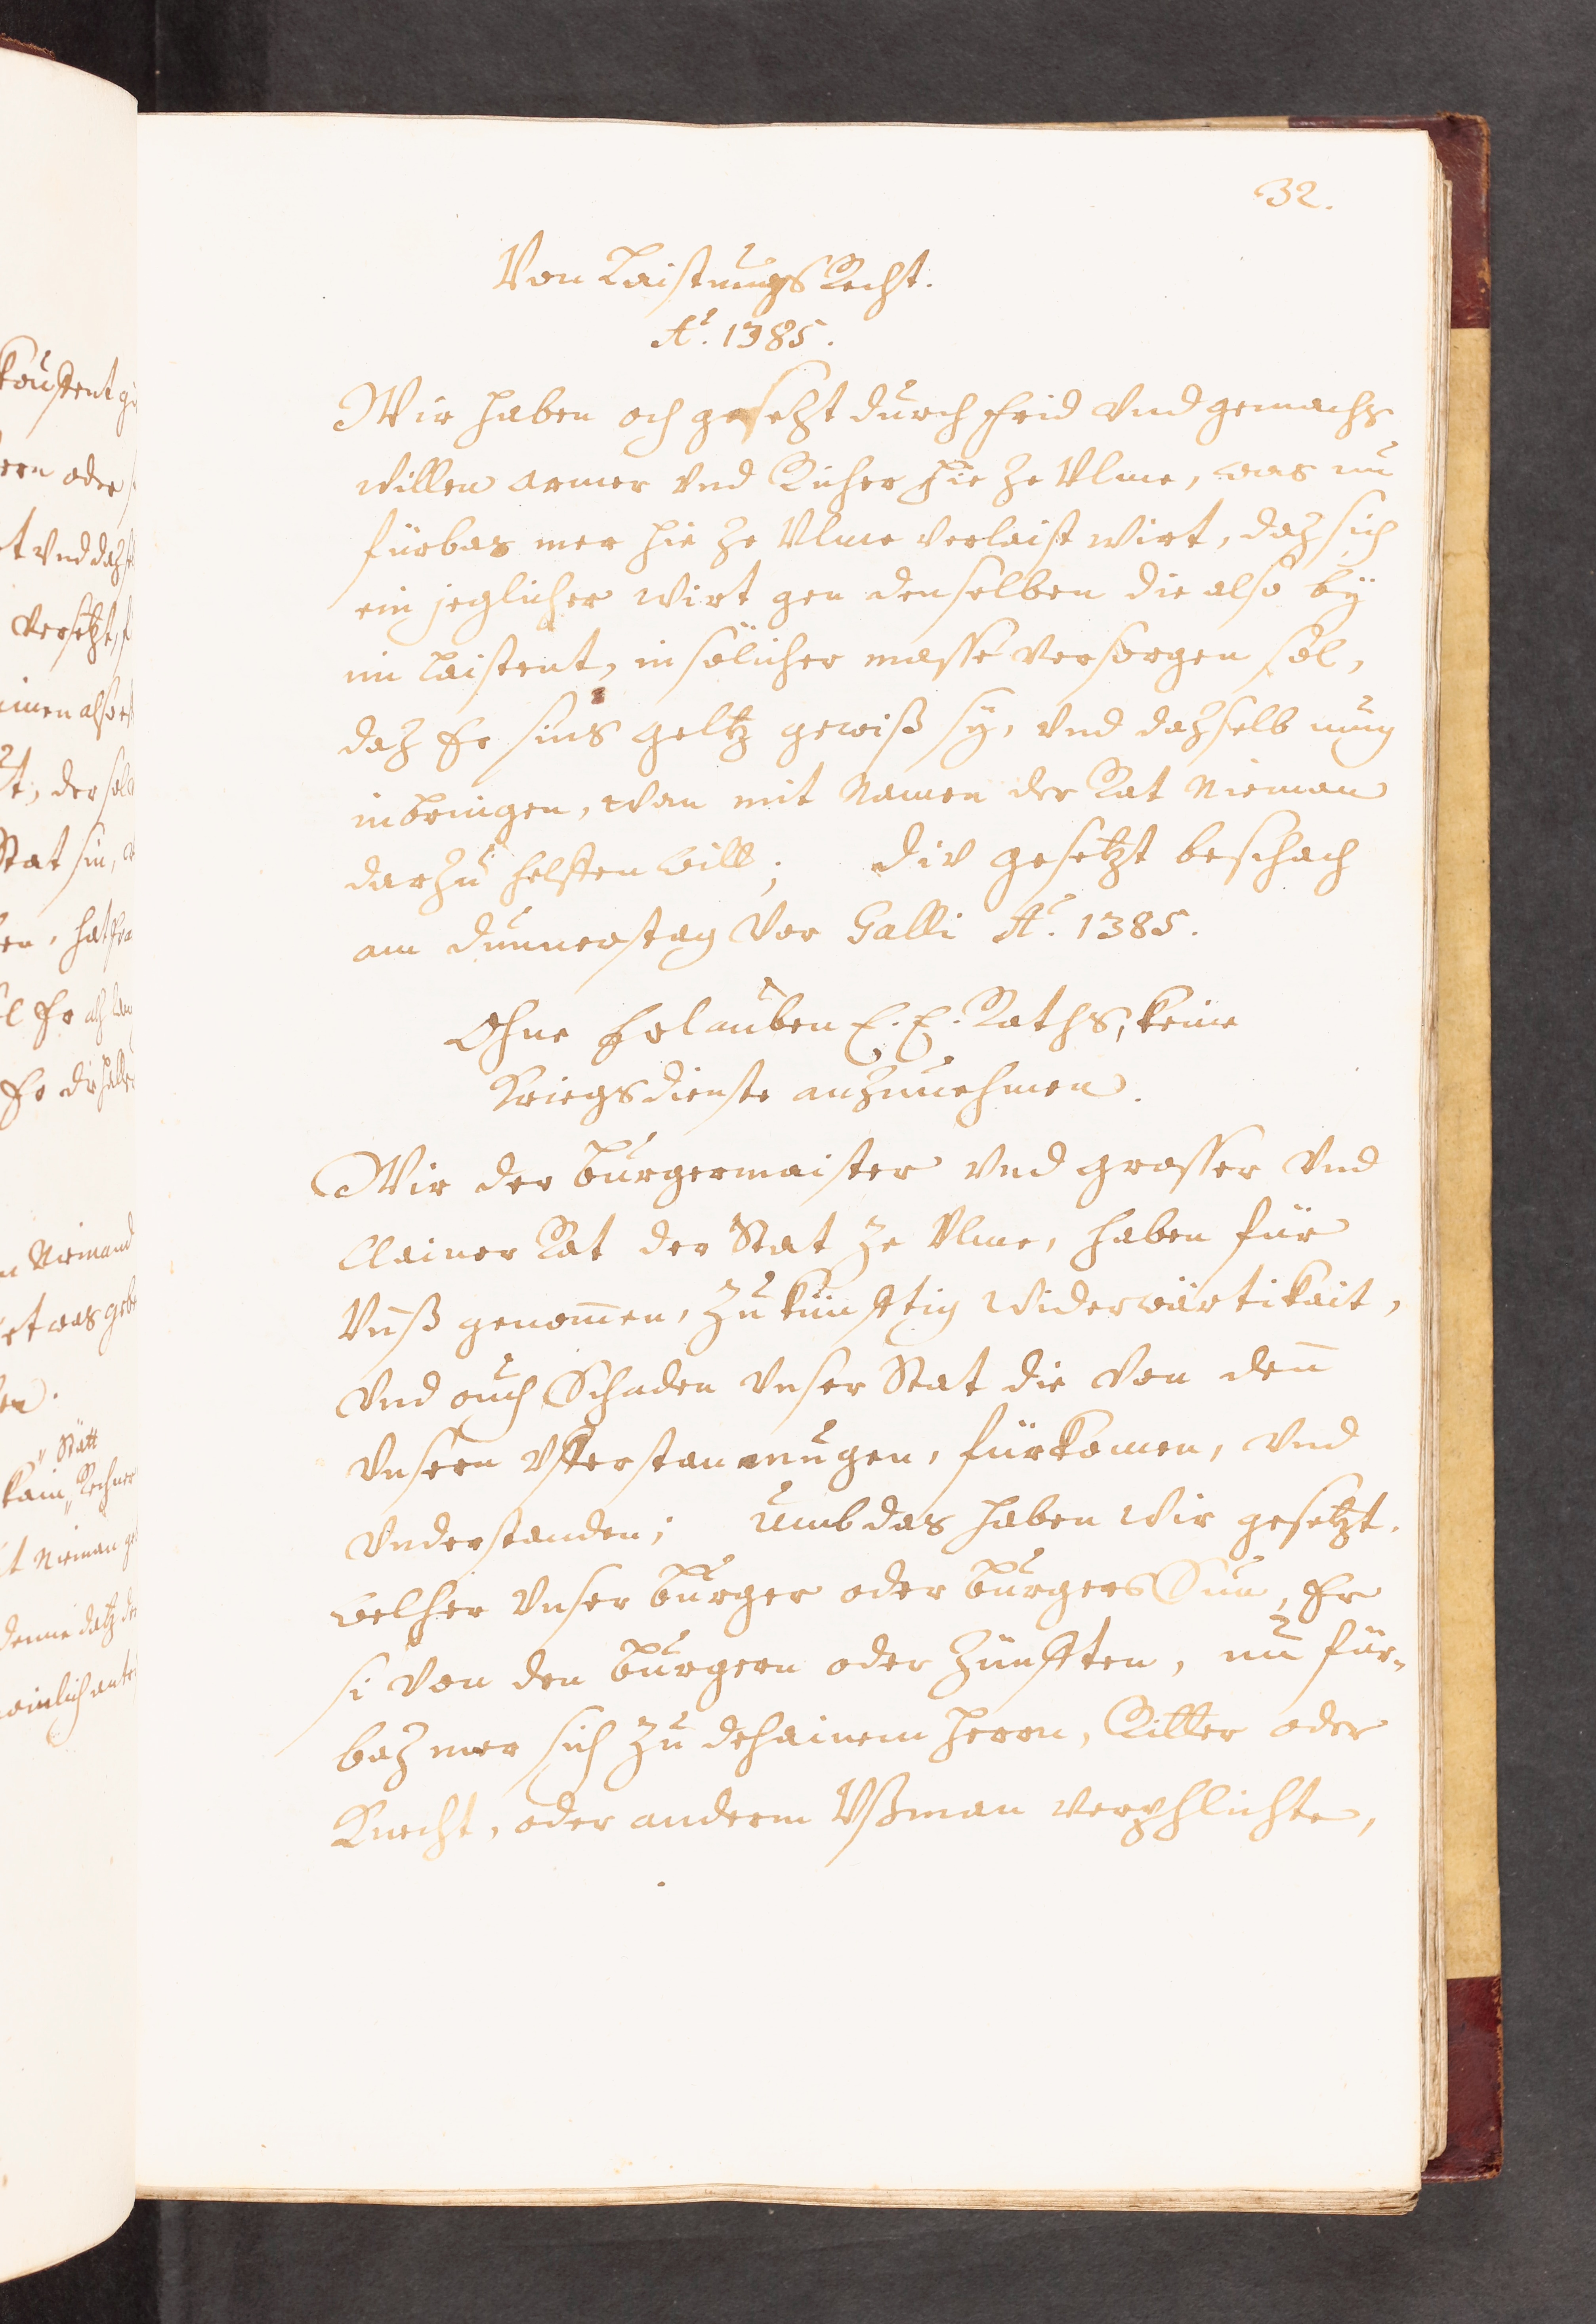 32.
Von Laistungs Recht.
Aō. 1385.
Wir haben och gesetzt durch frid vnd gemachs
willen armer vnd Richer hie ze Vlme, was nu
fürbas mer hie ze Vlme verlaist wirt, daz sich
ein jeglicher wirt gen denselben die also bÿ
im laistent, in sölicher masse versorgen söl,
daz Er sins geltz gewiß sÿ, vnd dazselb mug
inbringen, wan mit Namen der Rat Nieman
darzu helffen will; div gesetzt beschach
am dunnerstag vor Galli Aō. 1385.
Ohne Erlauben E. E. Raths, keine
Kriegsdienste anzunehmen.
Wir der burgermaister vnd grosser vnd
clainer Rat der Stat ze Vlme, haben für
Vnß genom̄en, zukünfftig widerwärtikait,
vnd ouch Schaden vnser Stat die von den̄
vnsern vfferstan mugen, fürkomen, vnd
vnderstanden; umb das haben wir gesetzt.
welher vnser burger oder burgers Sun, Er
si von den burgern oder Zünfften, nu für-
baz mer sich zu dehainem herrn, Ritter oder
Knecht, oder anderm Vßman verphlichte,
koustent
ern oder
t vnd daz
versetzt,
t, der söl
Stat sin,
Niemand
etwas geb
Stätt
kain Rechner
t Nieman
denne datz